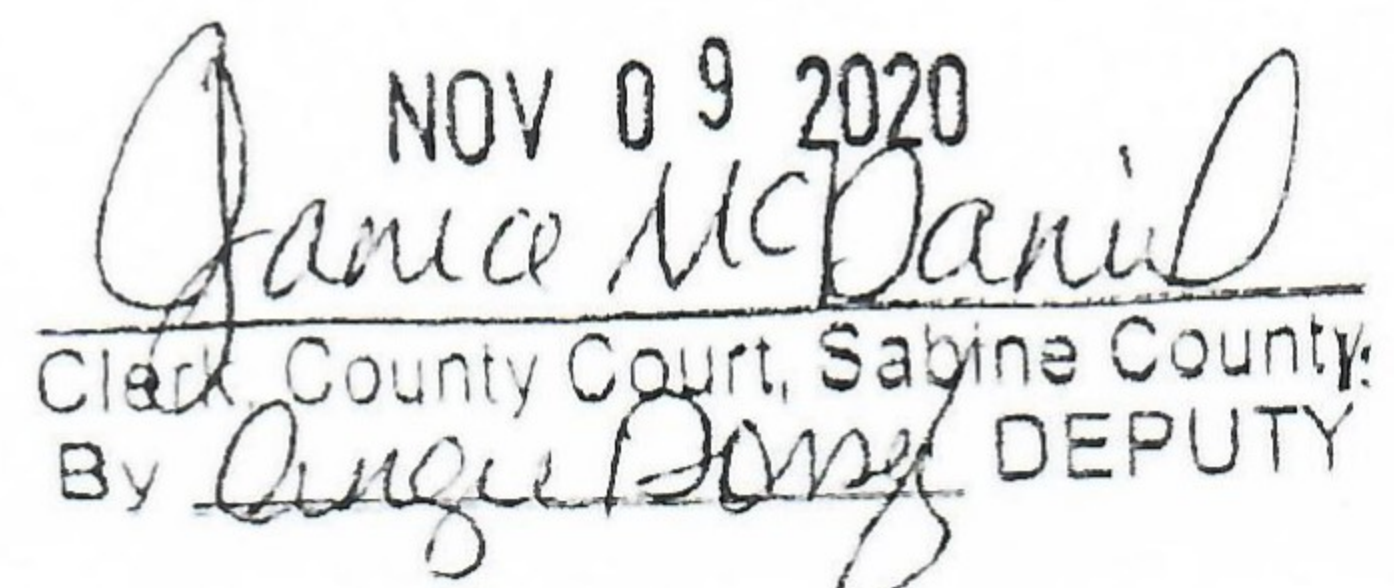 NOV 09 2020
Janice McDaniel
Clerk, County Court, Sabine County
By Angie DEPUTY